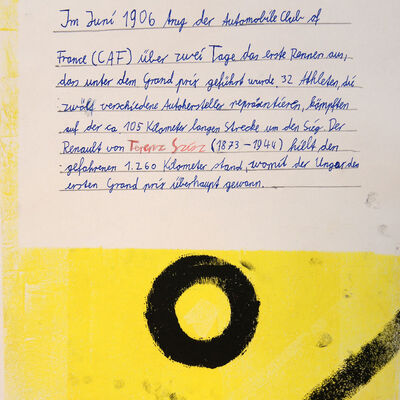 Im Juni 1906 trug der Automobile Club of
France (CAF) über zwei Tage das erste Rennen aus,
das unter dem Grand prix geführt wurde. 32 Athleten, die
zwölf verschiedene Autohersteller repräsentieren, kämpften
auf der ca. 105 Kilometer langen Strecke um den Sieg. Der
Renault von Ferenz Szisz (1873-1944) hielt den
gefahrenen 1.260 Kilometer stand, womit der Ungar den
ersten Grand prix überhaupt gewann.